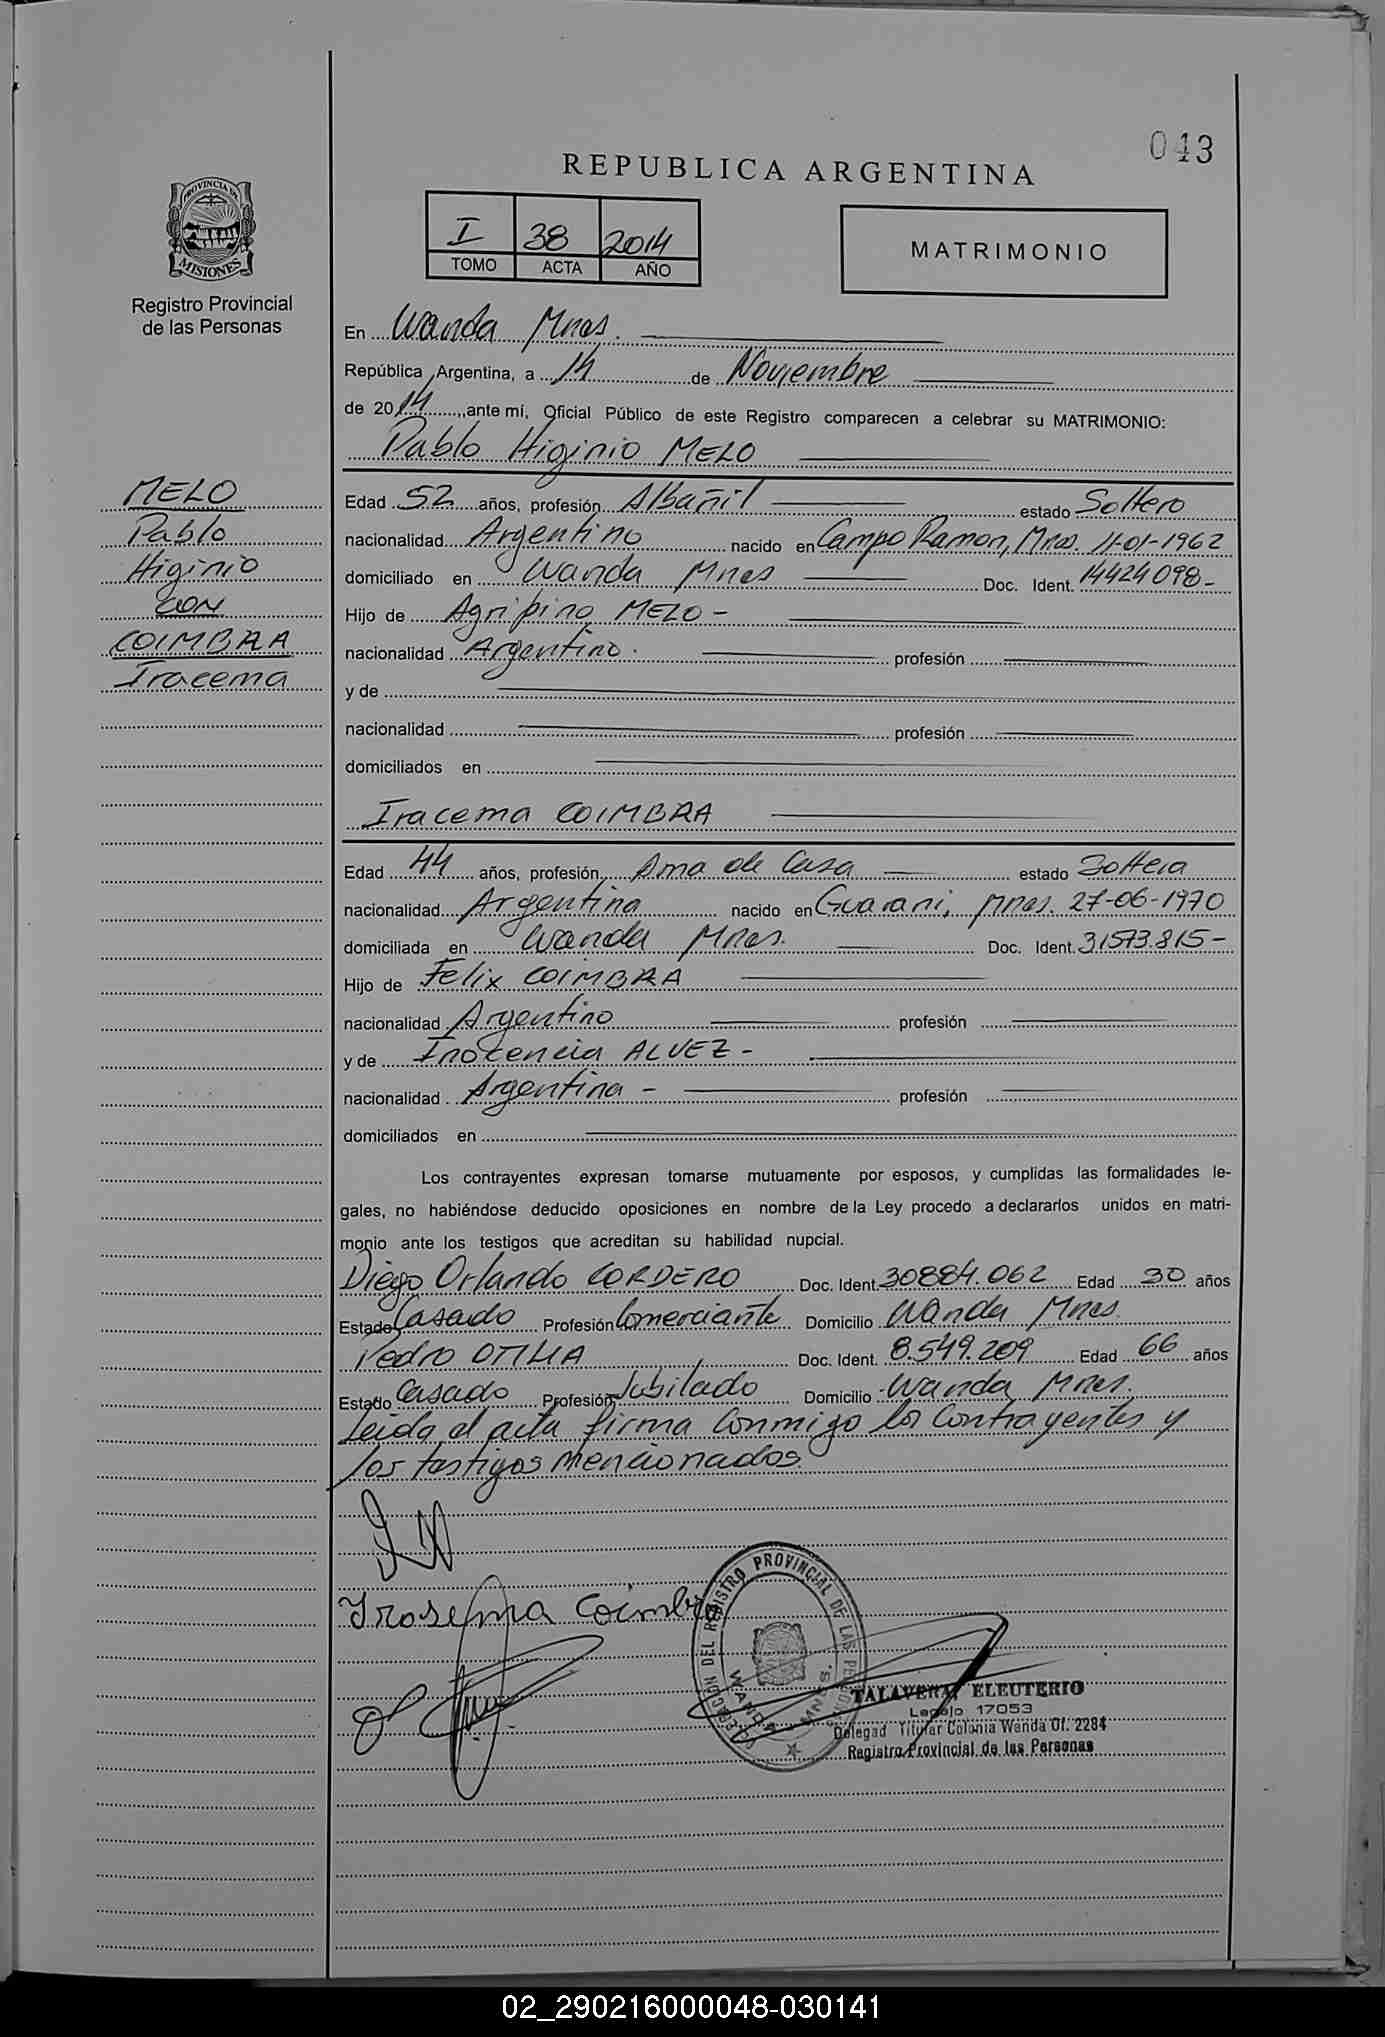 043
REPUBLICA ARGENTINA
PROVINCIA DE
MISIONES
Registro Provincial
de las Personas
I 38 2014
TOMO ACTA AÑO
MATRIMONIO
En Wanda Mnes.
República Argentina, a 14 de Noviembre
de 2014, ante mí, Oficial Público de este Registro comparecen a celebrar su MATRIMONIO:
Pablo Higinio MELO
MELO
Pablo
Higinio
CON
COIMBRA
Iracema
Edad 52 años, profesión Albañil estado Soltero
nacionalidad Argentino nacido en Campo Ramon, Mnes. 11-01-1962
domiciliado en Wanda Mnes Doc. Ident. 14424098-
Hijo de Agripino MELO-
nacionalidad Argentino. profesión
y de
nacionalidad profesión
domiciliados en
Iracema COIMBRA
Edad 44 años, profesión Ama de Casa estado Soltera
nacionalidad Argentina nacido en Guarani, Mnes. 27-06-1970
domiciliada en Wanda Mnes. Doc. Ident. 31573.815-
Hijo de Felix COIMBRA
nacionalidad Argentino profesión
y de Inocencia ALVEZ-
nacionalidad Argentina- profesión
domiciliados en
Los contrayentes expresan tomarse mutuamente por esposos, y cumplidas las formalidades le-
gales, no habiéndose deducido oposiciones en nombre de la Ley procedo a declararlos unidos en matri-
monio ante los testigos que acreditan su habilidad nupcial.
Diego Orlando CORDERO Doc. Ident. 30884.062 Edad 30 años
Estado Casado Profesión Comerciante Domicilio Wanda Mnes.
Pedro Doc. Ident. 8.549.209 Edad 66 años
Estado Casado Profesión Jubilado Domicilio Wanda Mnes.
Leida el acta firma Conmigo los Contrayentes y
los testigos mencionados
Irosema Coimbra
REGISTRO PROVINCIAL DE LAS PERSONAS
WANDA MNES.
TALAVERA, ELEUTERIO
Legajo 17053
Delegad Titular Colonia Wanda Of. 2284
Registro Provincial de las Personas
02_290216000048-030141